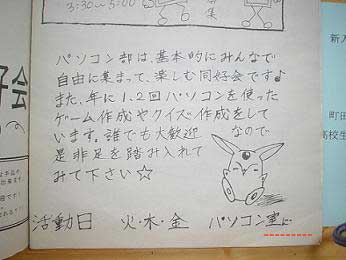 3:30~5:00
集
パソコン部は、基本的にみんなで
自由に集まって、楽しむ同好会です♪
また、年に1、2回パソコンを使った
ゲーム作成やクイズ作成をして
います。誰でも大歓迎なので
是非足を踏み入れて
みて下さい☆
活動日 火・木・金 パソコン室に…
好会
新入
町田
高校生